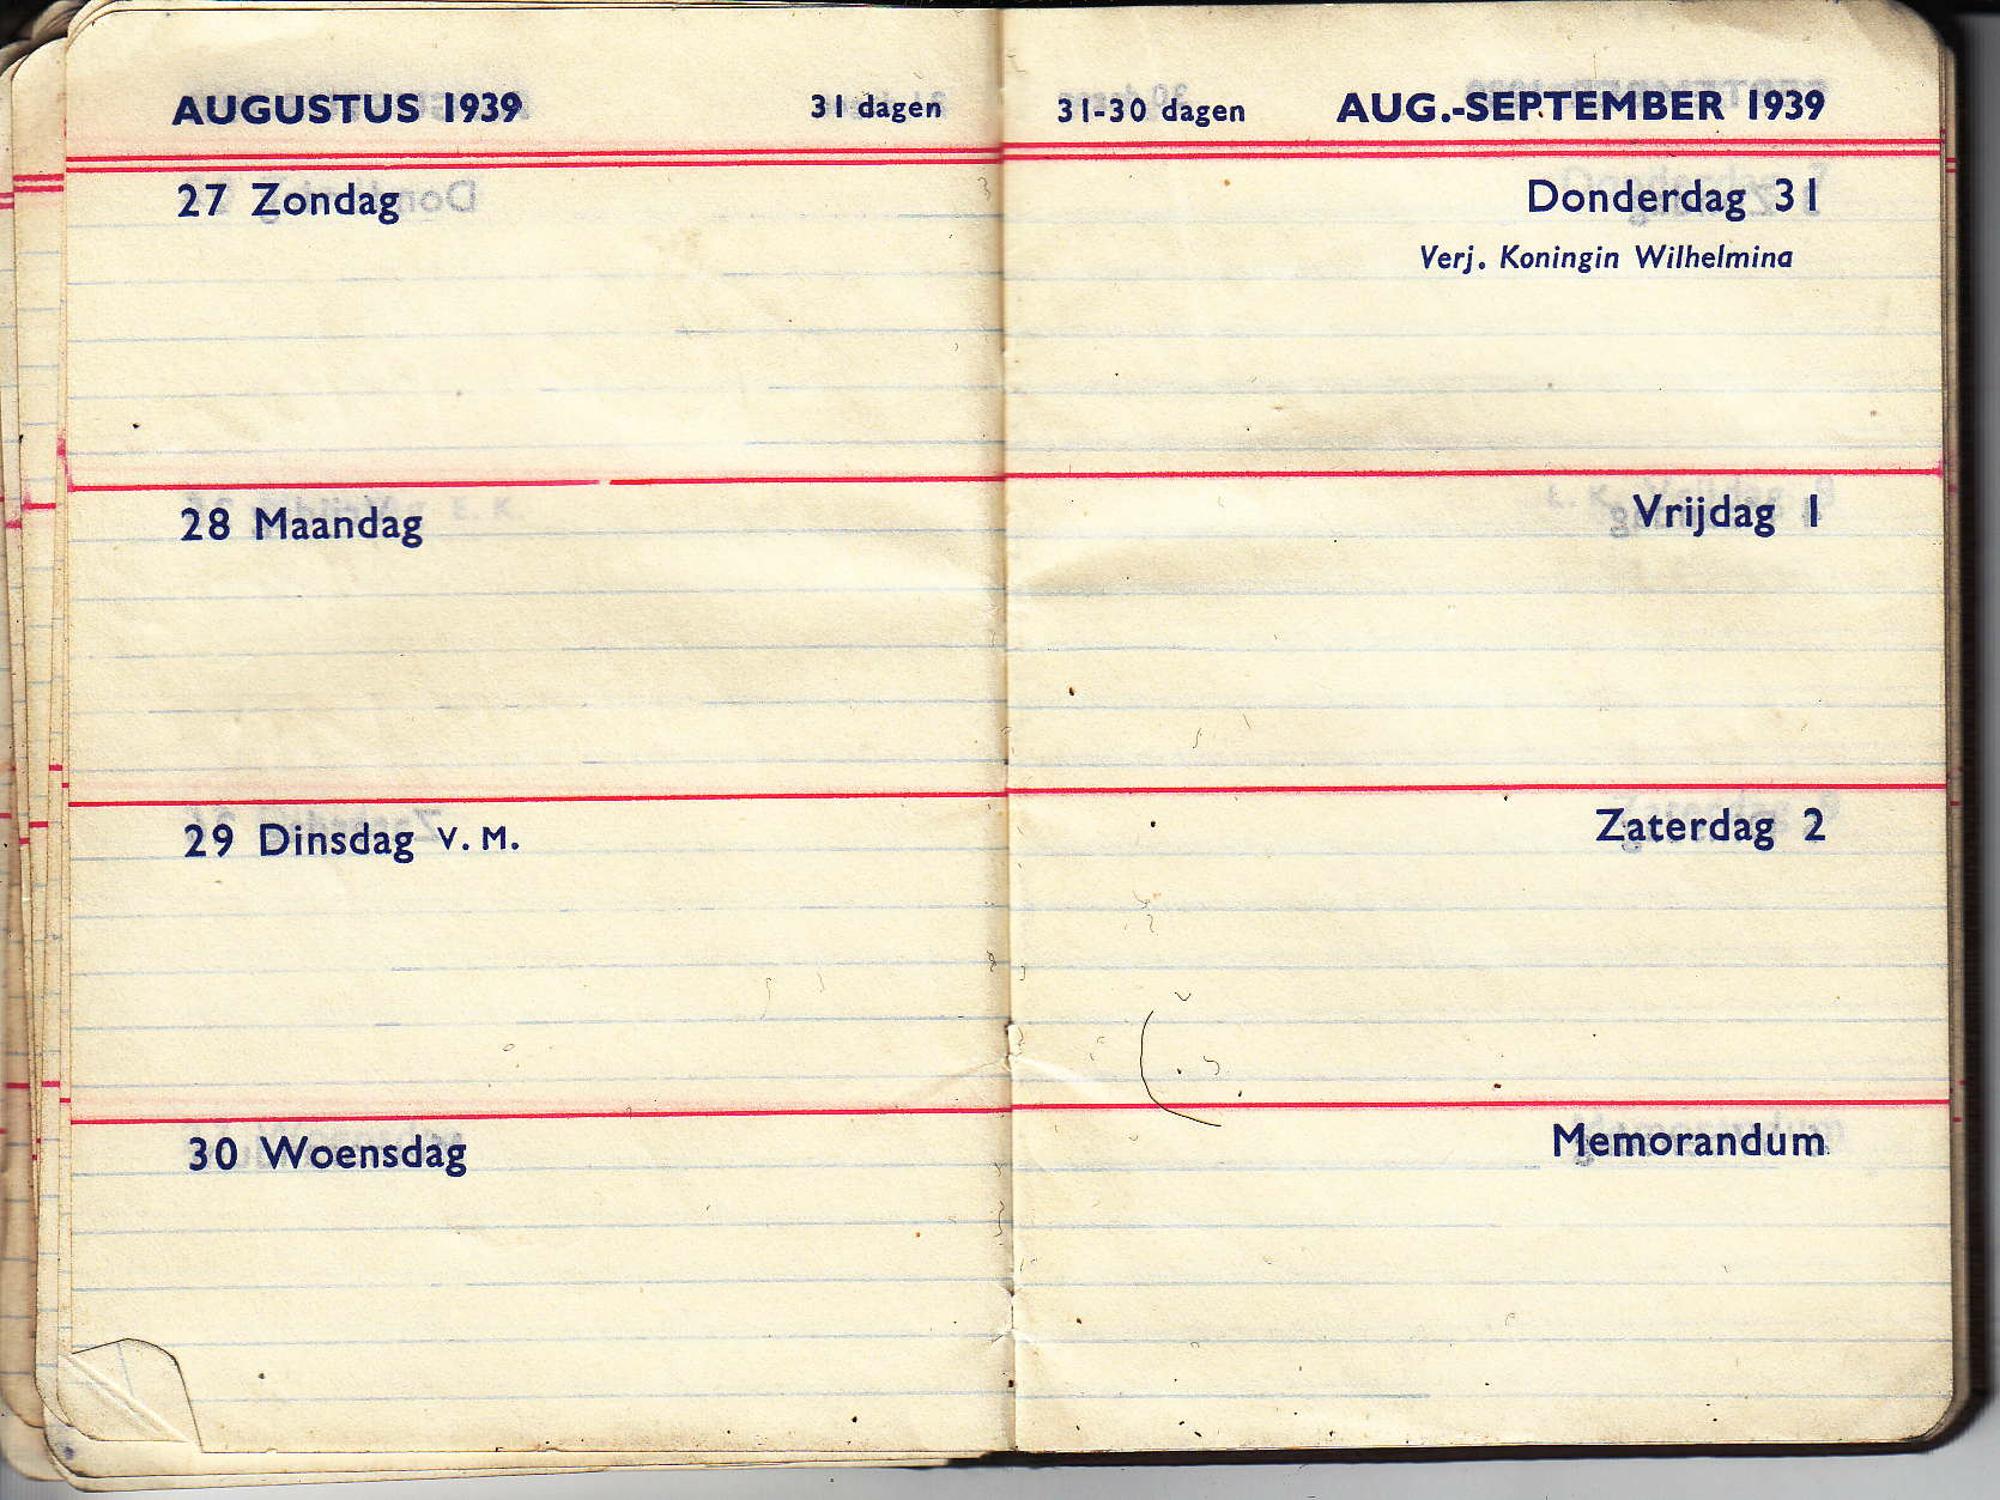 AUGUSTUS 1939 31 dagen
27 Zondag
28 Maandag
29 Dinsdag V. M.
30 Woensdag
31-30 dagen AUG.-SEPTEMBER 1939
Donderdag 31
Verj. Koningin Wilhelmina
Vrijdag 1
Zaterdag 2
Memorandum